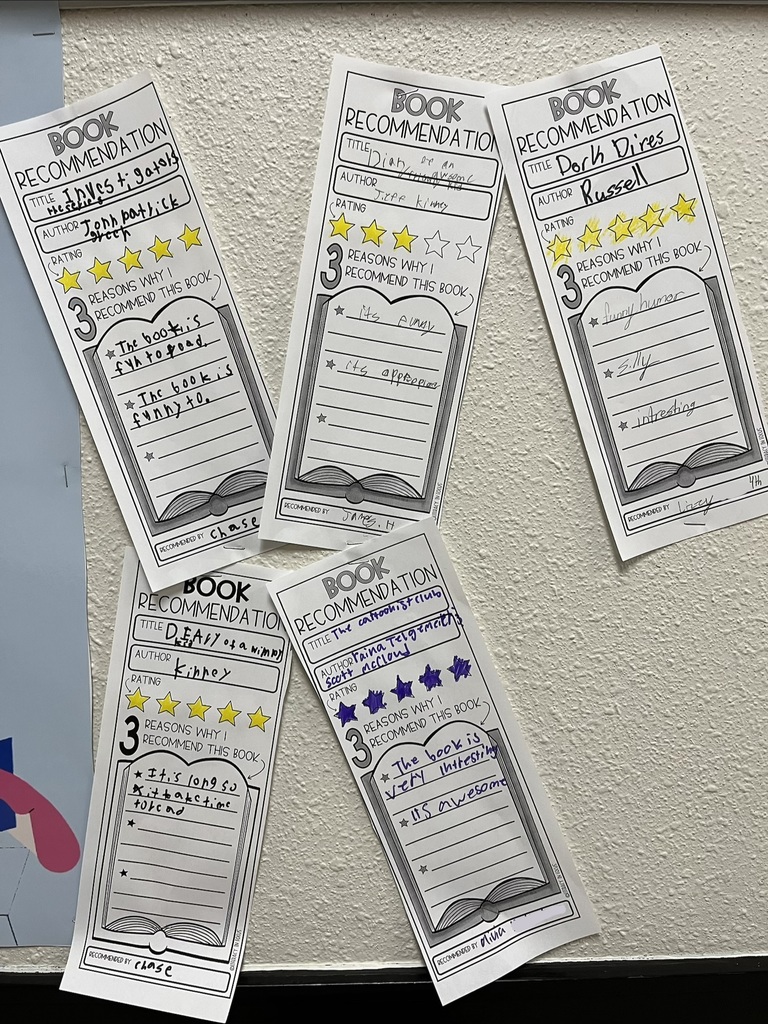 BOOK
RECOMMENDATION
TITLE Investigators
AUTHOR John patrick
green
RATING
3 REASONS WHY I
RECOMMEND THIS BOOK
The book is
fun to read.
The book is
funny to.
RECOMMENDED BY chase
BOOK
RECOMMENDATION
TITLE Diary of an
awesome
AUTHOR
Jeff kinney
RATING
3 REASONS WHY I
RECOMMEND THIS BOOK
its funny
its
RECOMMENDED BY James. H
BOOK
RECOMMENDATION
TITLE Dork Dires
AUTHOR Russell
RATING
3 REASONS WHY I
RECOMMEND THIS BOOK
funny humor
silly
intresting
4th
RECOMMENDED BY
BOOK
RECOMMENDATION
TITLE DIARY of a wimpy
kid
AUTHOR
Kinney
RATING
3 REASONS WHY I
RECOMMEND THIS BOOK
It's long so
it take time
to read
RECOMMENDED BY chase
BOOK
RECOMMENDATION
TITLE The cartoonist club
AUTHOR raina Telgemeier
scott mccloud
RATING
3 REASONS WHY I
RECOMMEND THIS BOOK
The book is
very intresting
its awesome
RECOMMENDED BY